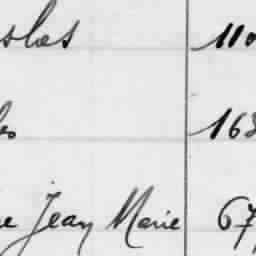 slas 110
les 168
re Jean Marie 67